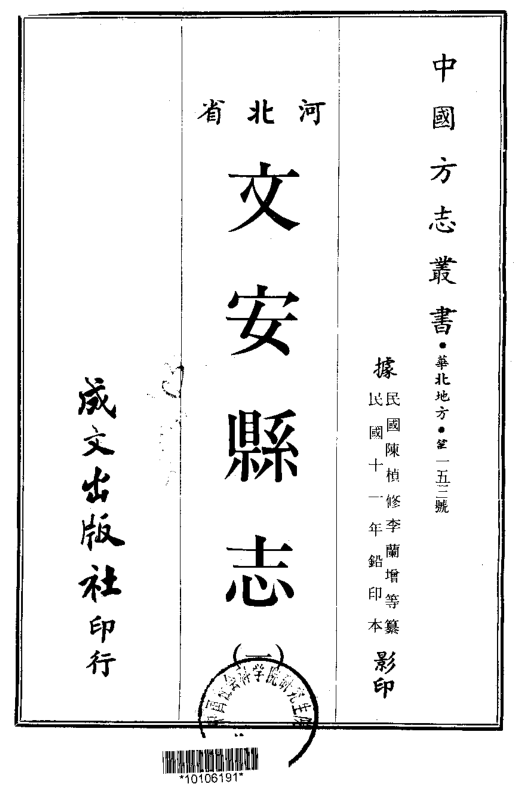 中國方志叢書•華北地方•第一五三號
據民國陳楨修李蘭增等纂
民國十一年鉛印本影印
河北省
文安縣志
(一)
成文出版社印行
*10106191*